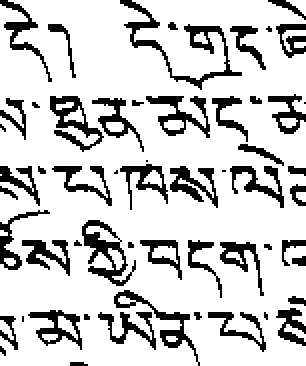 དེ།  དེ་གྲང་
ས་ཐུན་མང་མ
ས་པ་ཁས་ལེ
ཆོས་ཀྱི་བདག་
ས་མ་ཡིན་པ་